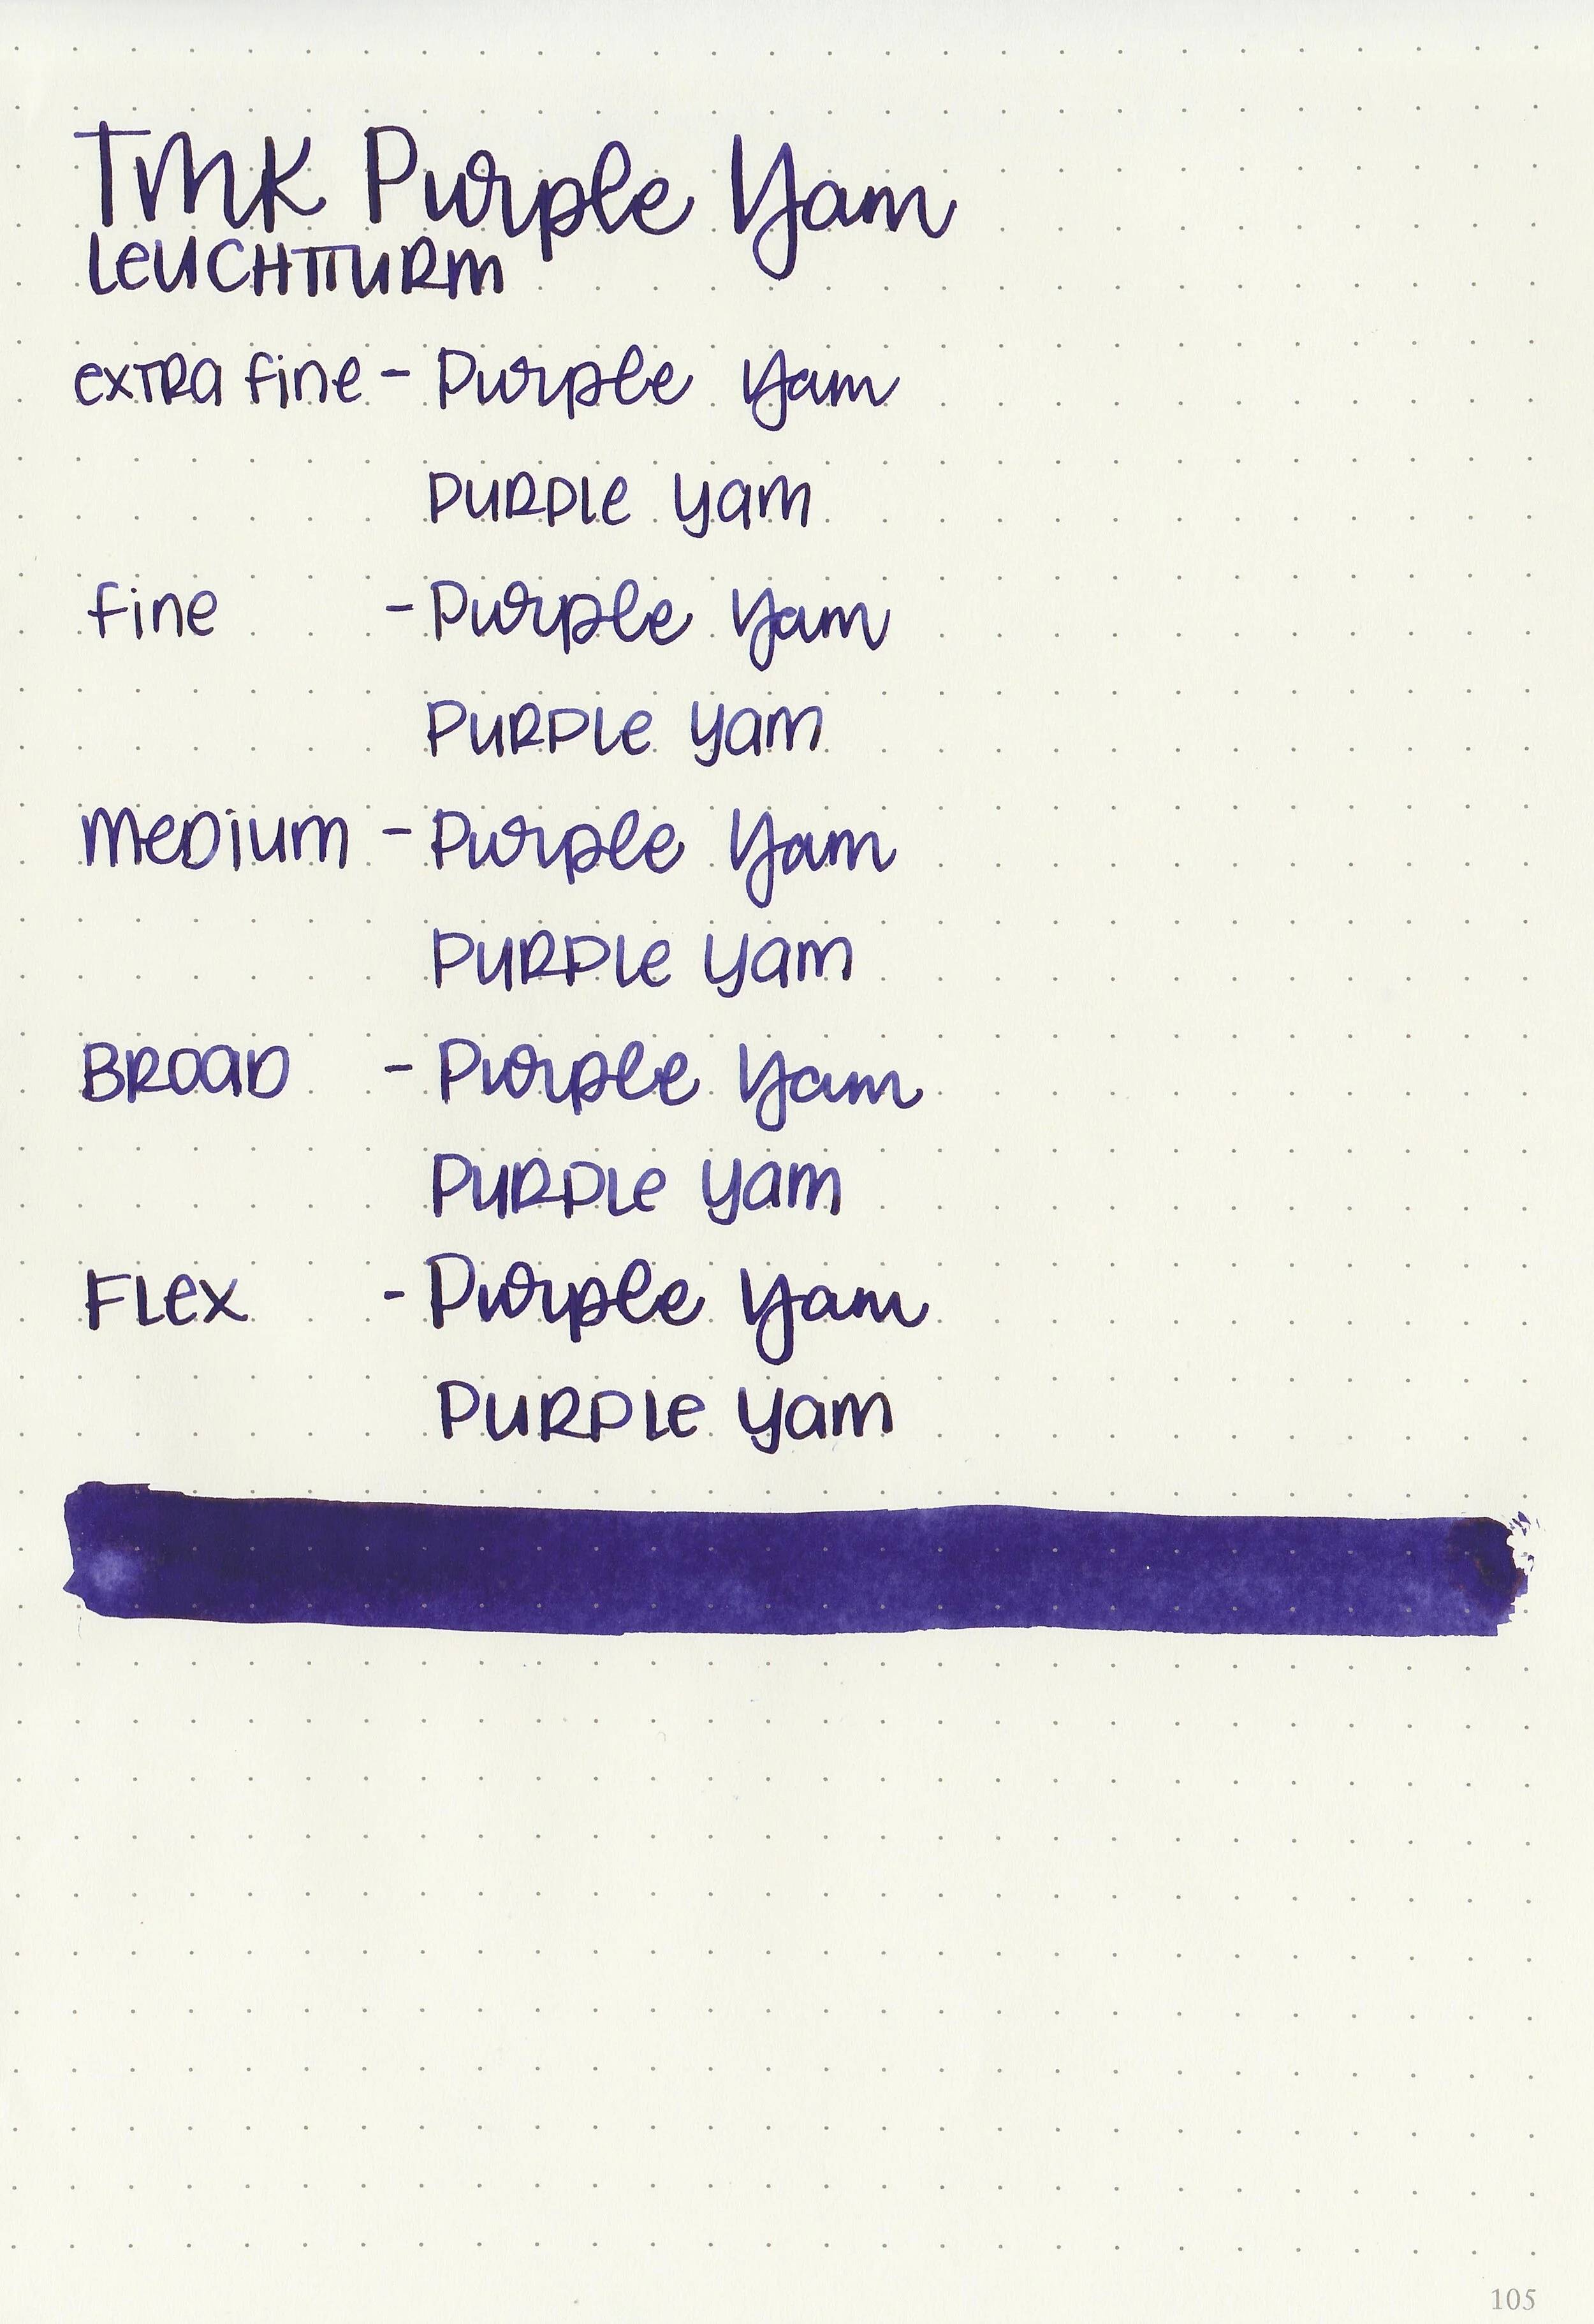 TMK Purple Yam
LEUCHTTURM
extra fine - Purple Yam
PURPLE yam
fine - Purple Yam
PURPLE yam
medium - Purple Yam
PURPLE yam
BROAD - Purple Yam
PURPLE yam
FLEX - Purple Yam
PURPLE yam
105